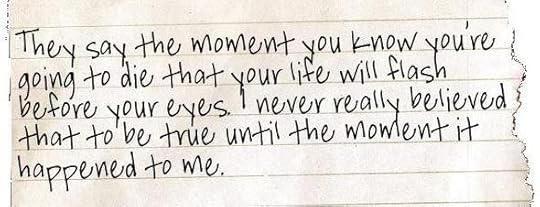 They say the moment you know you're
going to die that your life will flash
before your eyes. I never really believed
that to be true until the moment it
happened to me.